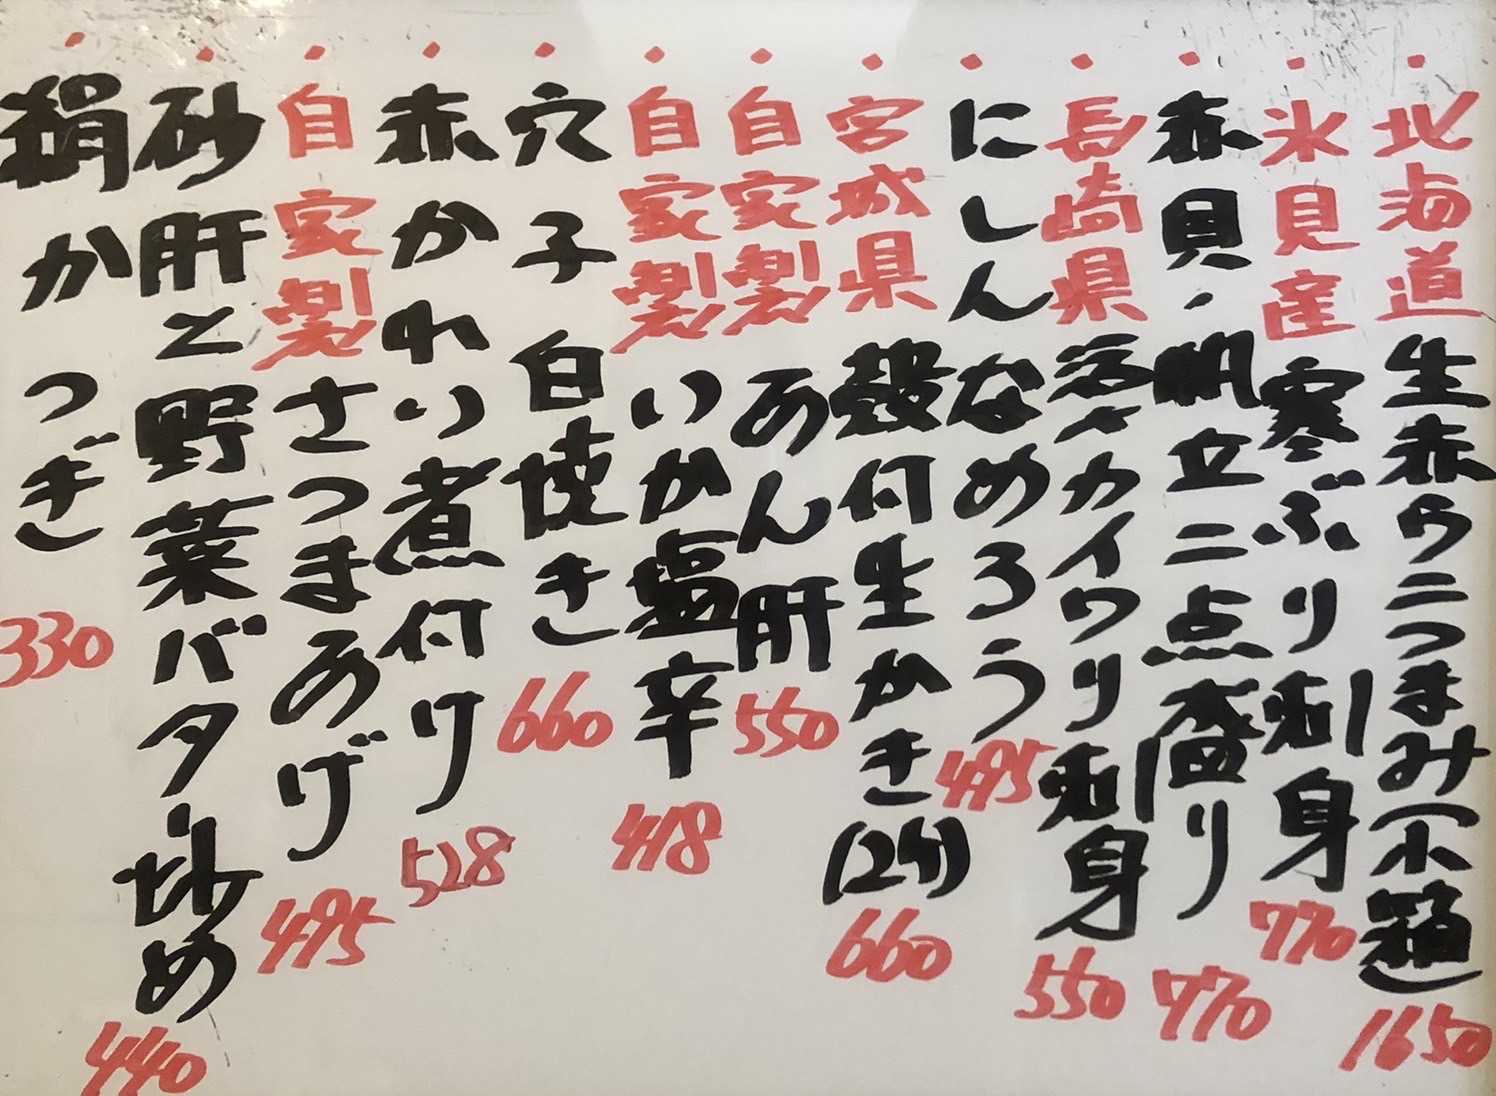 ・北海道生赤ウニつまみ(小箱)1650
・氷見産寒ぶり刺身770
・赤貝・帆立二点盛り770
・長崎県活〆カイワリ刺身550
・にしんなめろう495
・宮城県殻付生かき(2ケ)660
・自家製あん肝550
・自家製いか塩辛418
・穴子白焼き660
・赤かれい煮付け528
・自家製さつまあげ495
・砂肝と野菜バター炒め440
・絹かつぎ330